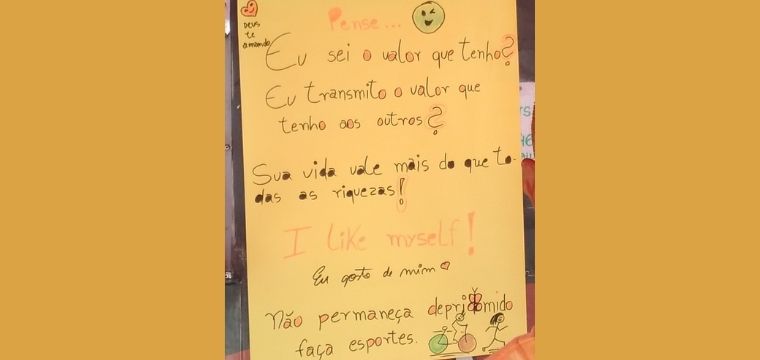 Deus
te
amando
Pense...
Eu sei o valor que tenho?
Eu transmito o valor que
tenho aos outros?
Sua vida vale mais do que to-
das as riquezas!
I like myself!
Eu gosto de mim
Não permaneça depridomido
faça esportes.